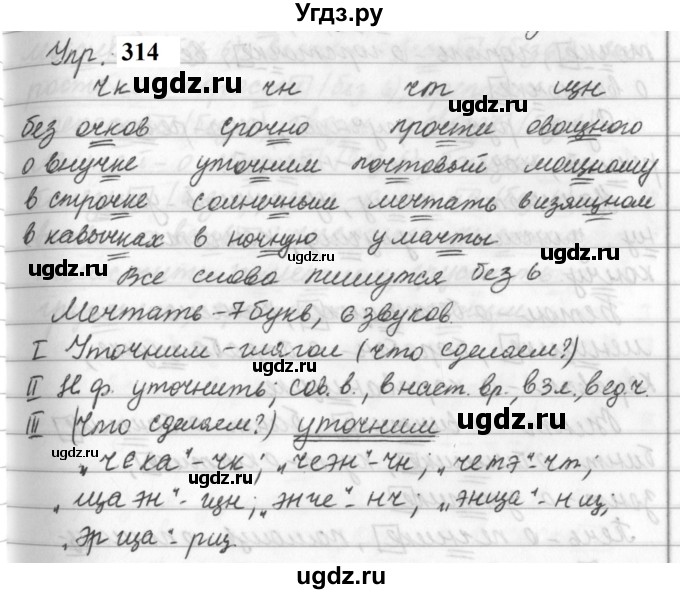 Угдз.ру
Упр. 314
чк чн чт щн
без очков срочно прочти овощного
о внучке уточним почтовый мощному
в строчке солнечным мечтать в изящном
в кавычках в ночную у мачты
Все слова пишутся без ь
Мечтать - 7 букв, 6 звуков.
I Уточним - глагол (что сделаем?)
II Н.ф. уточнить; сов.в., в наст.вр., в 3 л., в ед.ч.
III (Что сделаем?) уточним
"чека" - чк; "чеэн" - чн; "четэ" - чт;
"щаэн" - щн; "энче" - нч; "энща" - нщ;
"эрща" - рщ.
ugdz.ru
ugdz.ru
ugdz.ru
ugdz.ru
ugdz.ru
ugdz.ru
ugdz.ru
ugdz.ru
ugdz.ru
ugdz.ru
ugdz.ru
ugdz.ru